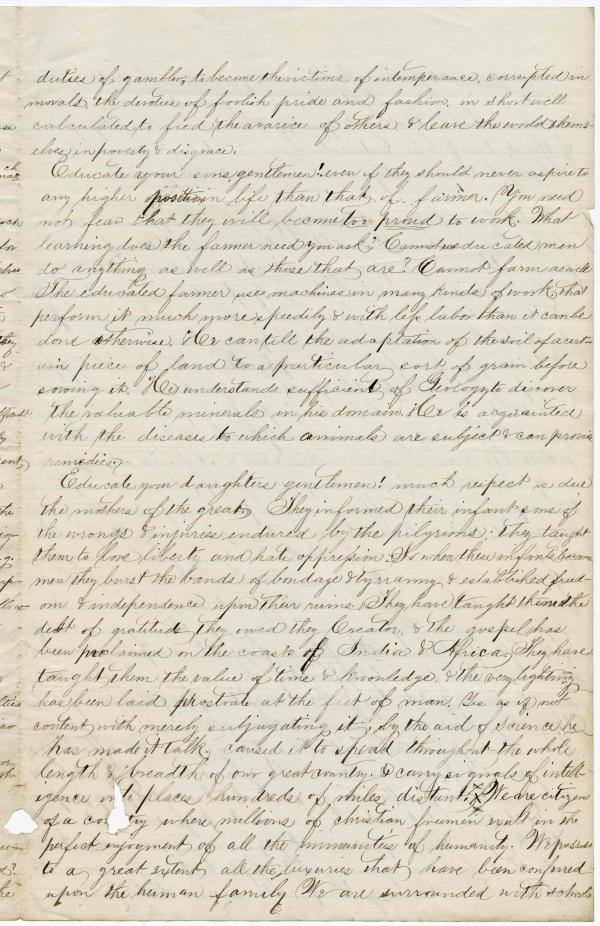 duties of gamblers, to become the victims of intemperance, corrupted in
morals, the devotees of foolish pride and fashion, in short well
calculated to feed the avarice of others & leave the world them-
elves in poverty & disgrace.
Educate your sons gentlemen! even if they should never aspire to
any higher position in life than that of farmer. You need
not fear that they will become too proud to work. What
learning does the farmer need you ask? Can uneducated men
do anything as well as those that are? Cannot farm as well
The educated farmer uses machines in many kinds of work, that
perform it much more speedily & with less labor than it can be
done otherwise. He can tell the adaptation of the soil of a cert-
ain piece of land to a particular sort of grain before
sowing it. He understands sufficient of Geology to discover
the valuable minerals in his domain. He is acquainted
with the diseases to which animals are subject & can provide
remedies.
Educate your daughters gentlemen! much respect is due
the mothers of the great. They informed their infant sons of
the wrongs & injuries endured by the pilgrims: They taught
them to love liberty and hate oppression. So when these infants became
men they burst the bands of bondage & tyrranny & established freed-
om & independence upon their ruins. They have taught them the
debt of gratitude they owed they Creator, & the gospel has
been proclaimed on the coasts of India & Africa. They have
taught them the value of time & knowledge, & the very lightning
has been laid prostrate at the feet of man. Yes as if not
content with merely subjugating it, by the aid of science he
has made it talk, caused it to speed throughout the whole
length & breadth of our great country. & carry signals of intell-
igence into places hundreds of miles distant. We are citizens
of a country where millions of christian freemen exult in the
perfect enjoyment of all the immunities of humanity. We possess
to a great extent all the luxuries that have been conferred
upon the human family We are surrounded with schools